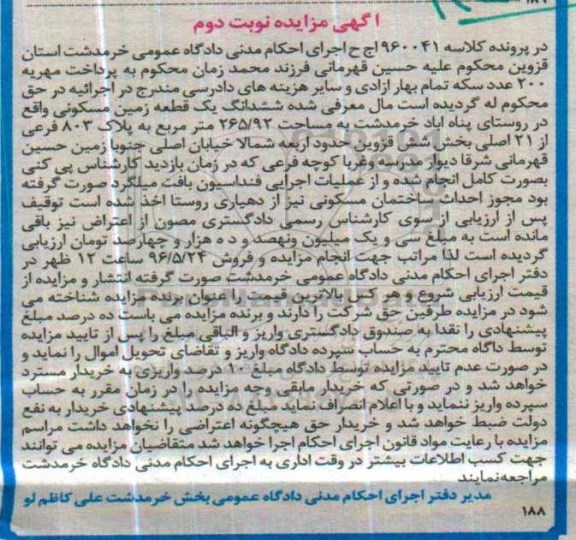 آگهی مزایده نوبت دوم
در پرونده کلاسه ۹۶۰۰۴۱ اج ح اجرای احکام مدنی دادگاه عمومی خرمدشت استان
قزوین محکوم علیه حسین قهرمانی فرزند محمد زمان محکوم به پرداخت مهریه
۲۰۰ عدد سکه تمام بهار ازادی و سایر هزینه های دادرسی مندرج در اجرائیه در حق
محکوم له گردیده است مال معرفی شده ششدانگ یک قطعه زمین مسکونی واقع
در روستای پناه اباد خرمدشت به مساحت ۲۶۵/۹۲ متر مربع به پلاک ۸۰۳ فرعی
از ۲۱ اصلی بخش شش قزوین حدود اربعه شمالا خیابان اصلی جنوبا زمین حسین
قهرمانی شرقا دیوار مدرسه وغربا کوچه فرعی که در زمان بازدید کارشناس پی کنی
بصورت کامل انجام شده و از عملیات اجرایی فنداسیون بافت میلگرد صورت گرفته
بود مجوز احداث ساختمان مسکونی نیز از دهیاری روستا اخذ شده است توقیف
پس از ارزیابی از سوی کارشناس رسمی دادگستری مصون از اعتراض نیز باقی
مانده است به مبلغ سی و یک میلیون ونهصد و ده هزار و چهارصد تومان ارزیابی
گردیده است لذا مراتب جهت انجام مزایده و فروش ۹۶/۵/۲۴ ساعت ۱۲ ظهر در
دفتر اجرای احکام مدنی دادگاه عمومی خرمدشت صورت گرفته انتشار و مزایده از
قیمت ارزیابی شروع و هر کس بالاترین قیمت را عنوان برنده مزایده شناخته می
شود در مزایده طرفین حق شرکت را دارند و برنده مزایده می باست ده درصد مبلغ
پیشنهادی را نقدا به صندوق دادگستری واریز و الباقی مبلغ را پس از تایید مزایده
توسط داگاه محترم به حساب سپرده دادگاه واریز و تقاضای تحویل اموال را نماید و
در صورت عدم تایید مزایده توسط دادگاه مبلغ ۱۰ درصد واریزی به خریدار مسترد
خواهد شد و در صورتی که خریدار مابقی وجه مزایده را در زمان مقرر به حساب
سپرده واریز ننماید و با اعلام انصراف نماید مبلغ ده درصد پیشنهادی خریدار به نفع
دولت ضبط خواهد شد و خریدار حق هیچگونه اعتراضی را نخواهد داشت مراسم
مزایده با رعایت مواد قانون اجرای احکام اجرا خواهد شد متقاضیان مزایده می توانند
جهت کسب اطلاعات بیشتر در وقت اداری به اجرای احکام مدنی دادگاه خرمدشت
مراجعه نمایند
مدیر دفتر اجرای احکام مدنی دادگاه عمومی بخش خرمدشت علی کاظم لو
۱۸۸